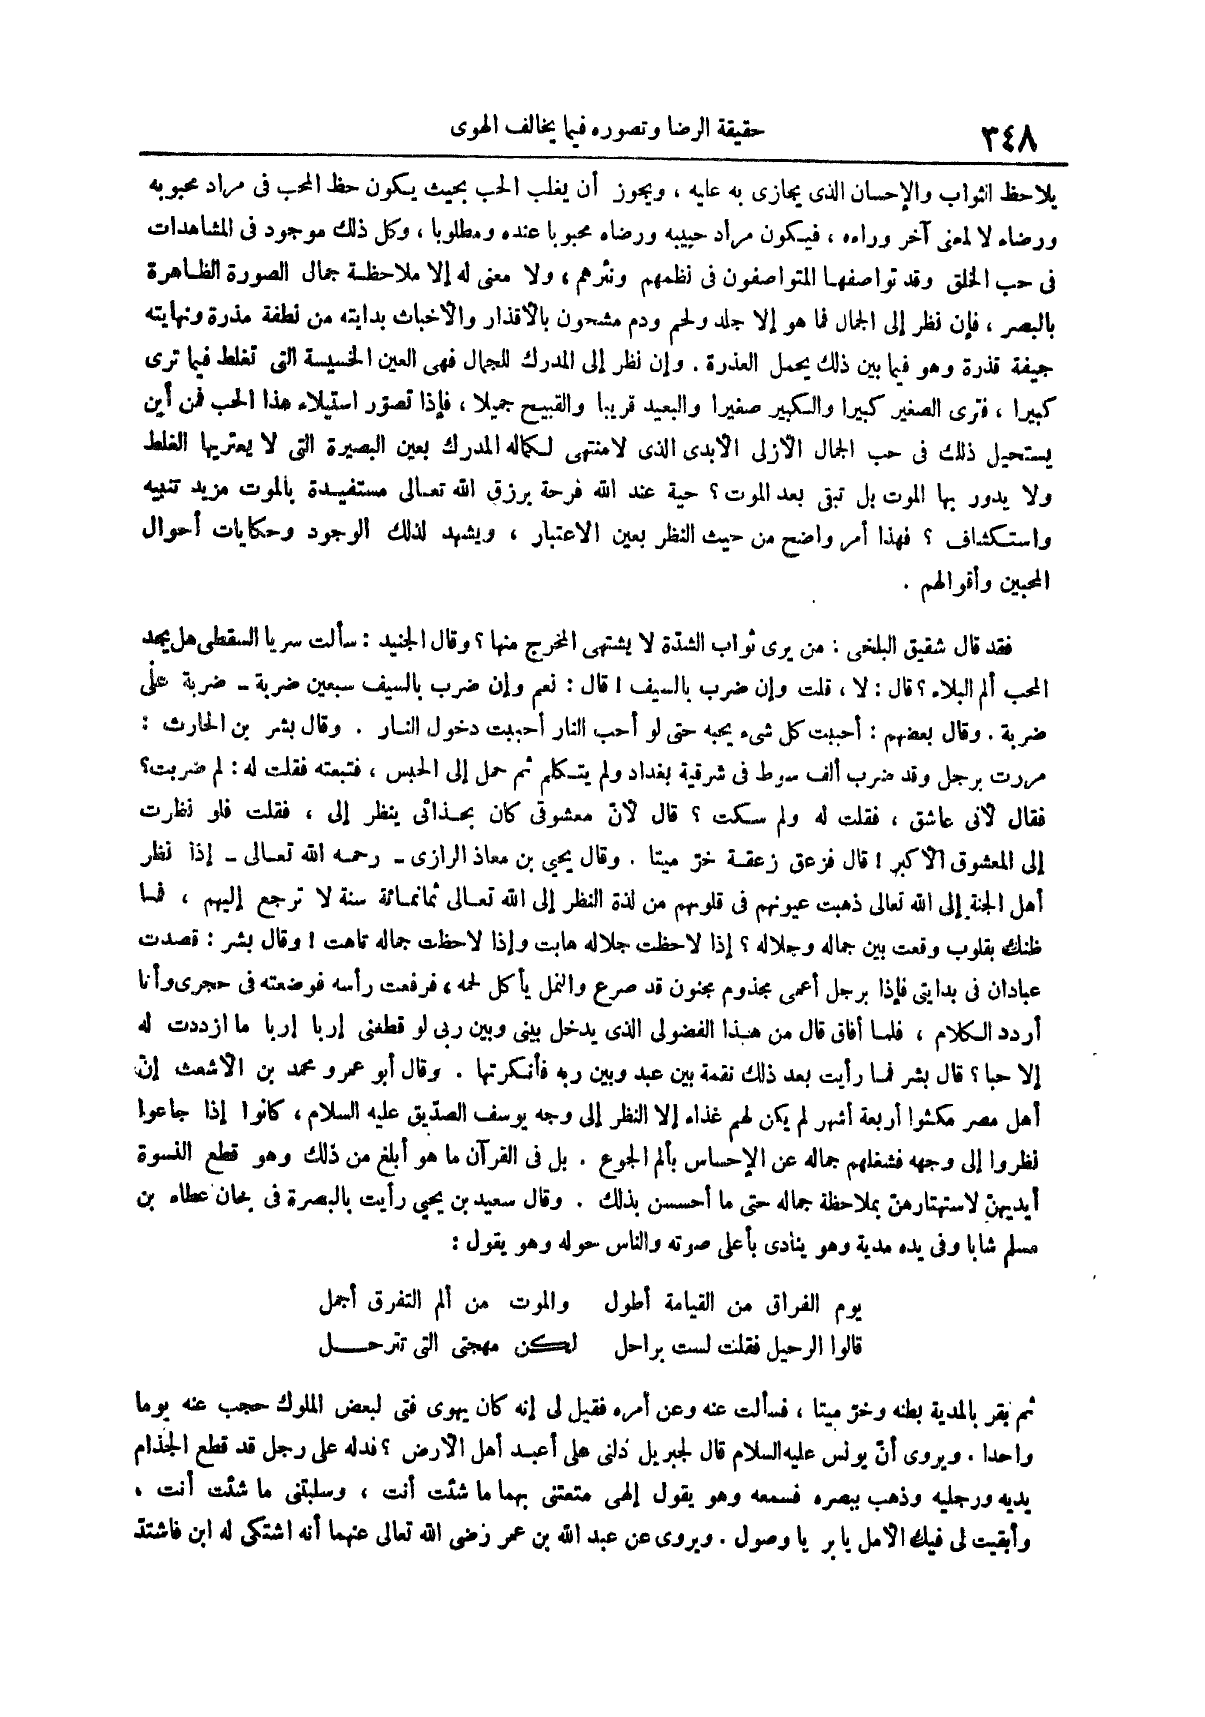 ٣٤٨
حقيقة الرضا وتصوره فيما يخالف الهوى
يلاحظ الثواب والإحسان الذى يجازى به عليه ، ويجوز أن يغلب الحب بحيث يكون حظ المحب فى مراد محبوبه
ورضاه لا لمعنى آخر وراءه ، فيكون مراد حبيبه ورضاه محبوبا عنده ومطلوبا ، وكل ذلك موجود فى المشاهدات
فى حب الخلق وقد تواصفها المتواصفون فى نظمهم ونثرهم ، ولا معنى له إلا ملاحظة جمال الصورة الظاهرة
بالبصر ، فإن نظر إلى الجمال فما هو إلا جلد ولحم ودم مشحون بالأقذار والأخباث بدايته من نطفة مذرة ونهايته
جيفة قذرة وهو فيما بين ذلك يحمل العذرة . وإن نظر إلى المدرك للجمال فهى العين الخسيسة التى تغلط فيما ترى
كبيرا ، فترى الصغير كبيرا والكبير صغيرا والبعيد قريبا والقبيح جميلا ، فإذا تصوّر استيلاء هذا الحب فمن أين
يستحيل ذلك فى حب الجمال الأزلى الأبدى الذى لامنتهى لكماله المدرك بعين البصيرة التى لا يعتريها الغلط
ولا يدور بها الموت بل تبقى بعد الموت ؟ حية عند الله فرحة برزق الله تعالى مستفيدة بالموت مزيد تنبيه
واستكشاف ؟ فهذا أمر واضح من حيث النظر بعين الاعتبار ، ويشهد لذلك الوجود وحكايات أحوال
المحبين وأقوالهم .
فقد قال شقيق البلخى : من يرى ثواب الشدّة لا يشتهى المخرج منها ؟ وقال الجنيد : سألت سريا السقطى هل يجد
المحب ألم البلاء ؟ قال : لا ، قلت وإن ضرب بالسيف ! قال : نعم وإن ضرب بالسيف سبعين ضربة - ضربة على
ضربة . وقال بعضهم : أحببت كل شىء يحبه حتى لو أحب النار أحببت دخول النار . وقال بشر بن الحارث :
مررت برجل وقد ضرب ألف سوط فى شرقية بغداد ولم يتكلم ثم حمل إلى الحبس ، فتبعته فقلت له : لم ضربت؟
فقال لأنى عاشق ، فقلت له ولم سكت ؟ قال لأنّ معشوقى كان بحذائى ينظر إلى ، فقلت فلو نظرت
إلى المعشوق الأكبر ! قال فزعق زعقة خرّ ميتا . وقال يحيى بن معاذ الرازى - رحمه الله تعالى - إذا نظر
أهل الجنة إلى الله تعالى ذهبت عيونهم فى قلوبهم من لذة النظر إلى الله تعالى ثمانمائة سنة لا ترجع إليهم ، فما
ظنك بقلوب وقعت بين جماله وجلاله ؟ إذا لاحظت جلاله هابت وإذا لاحظت جماله تاهت ! وقال بشر : قصدت
عبادان فى بدايتى فإذا برجل أعمى مجذوم مجنون قد صرع والنمل يأكل لحمه ، فرفعت رأسه فوضعته فى حجرى وأنا
أردد الكلام ، فلما أفاق قال من هذا الفضولى الذى يدخل بينى وبين ربى لو قطعنى إربا إربا ما ازددت له
إلا حبا ؟ قال بشر فما رأيت بعد ذلك نقمة بين عبد وبين ربه فأنكرتها . وقال أبو عمرو محمد بن الأشعث إنّ
أهل مصر مكثوا أربعة أشهر لم يكن لهم غذاء إلا النظر إلى وجه يوسف الصدّيق عليه السلام ، كانوا إذا جاعوا
نظروا إلى وجهه فشغلهم جماله عن الإحساس بألم الجوع . بل فى القرآن ما هو أبلغ من ذلك وهو قطع النسوة
أيديهنّ لاستهتارهنّ بملاحظة جماله حتى ما أحسسن بذلك . وقال سعيد بن يحيى رأيت بالبصرة فى خان عطاء بن
مسلم شابا وفى يده مدية وهو ينادى بأعلى صوته والناس حوله وهو يقول :
يوم الفراق من القيامة أطول والموت من ألم التفرق أجمل
قالوا الرحيل فقلت لست براحل لكن مهجتى التى تترحل
ثم بقر بالمدية بطنه وخرّ ميتا ، فسألت عنه وعن أمره فقيل لى إنه كان يهوى فتى لبعض الملوك حجب عنه يوما
واحدا . ويروى أنّ يونس عليه السلام قال لجبريل دلنى على أعبد أهل الأرض ؟ فدله على رجل قد قطع الجذام
يديه ورجليه وذهب ببصره فسمعه وهو يقول إلهى متعتنى بهما ما شئت أنت ، وسلبتنى ما شئت أنت ،
وأبقيت لى فيك الأمل يا بر يا وصول . ويروى عن عبد الله بن عمر رضى الله تعالى عنهما أنه اشتكى له ابن فاشتدّ